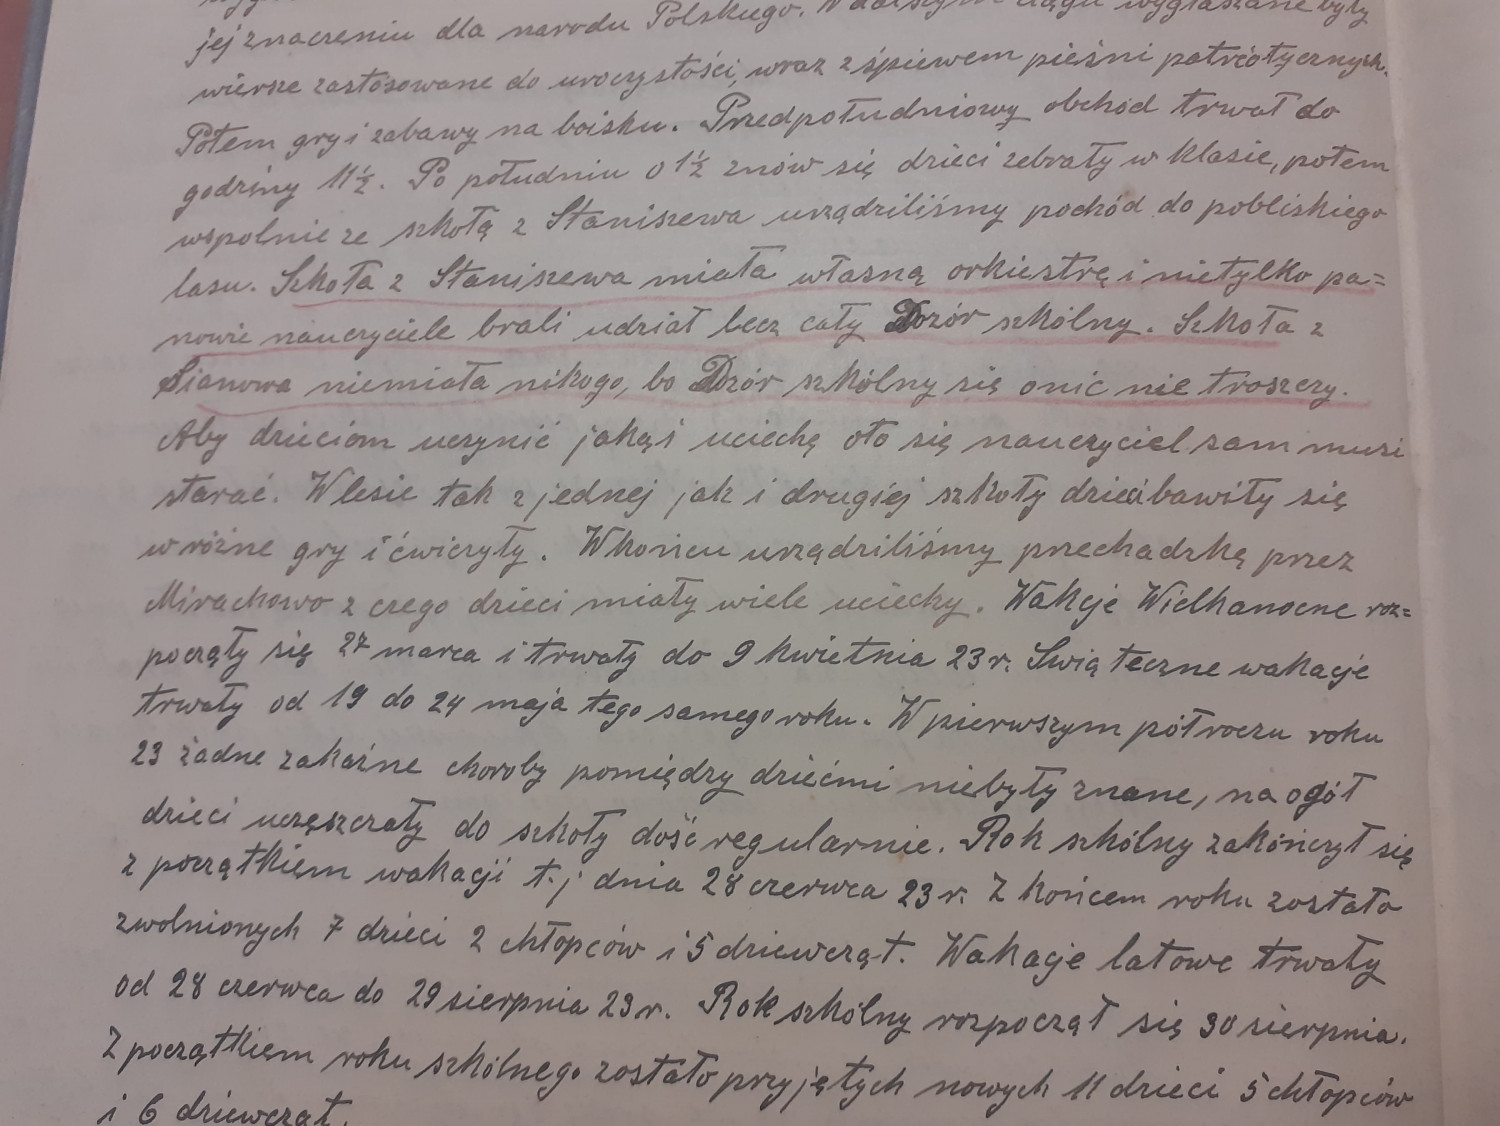 jej znaczeniu dla narodu Polskiego. W dalszym ciągu wygłaszane były
wiersze zastósowane do uroczystości, wraz z śpiewem pieśni patrёotycznych.
Potem gry i zabawy na boisku. Przedpołudniowy obchód trwał do
godziny 11½. Po południu o 1½ znów się dzieci zebrały w klasie, potem
wspolnie ze szkołą z Staniszewa urządziliśmy pochód do pobliskiego
lasu. Szkoła z Staniszewa miała własną orkiestrę i nietylko pa=
nowie nauczyciele brali udział lecz cały Dozór szkólny. Szkoła z
Sianowa niemiała nikogo, bo Dozór szkólny się onic nie troszczy.
Aby dzieciom uczynić jakąś uciechę oto się nauczyciel sam musi
starać. W lesie tak z jednej jak i drugiej szkoły dzieci bawiły się
w różne gry i ćwiczyły. Wkońcu urządziliśmy przechadzkę przez
Mirachowo z czego dzieci miały wiele uciechy. Wakcje Wielkanocne roz=
poczęły się 27 marca i trwały do 9 kwietnia 23 r. Świąteczne wakacje
trwały od 19 do 24 maja tego samego roku. W pierwszym półroczu roku
23 żadne zakaźne choroby pomiędzy dziećmi niebyły znane, na ogół
dzieci uczęszczały do szkoły dość regularnie. Rok szkólny zakończył się
z początkiem wakacji t.j dnia 28 czerwca 23 r. Z końcem roku zostało
zwolnionych 7 dzieci 2 chłopców i 5 dziewcząt. Wakacje latowe trwały
od 28 czerwca do 29 sierpnia 23 r. Rok szkólny rozpoczął się 30 sierpnia.
Z początkiem roku szkólnego zostało przyjętych nowych 11 dzieci 5 chłopców
i 6 dziewcząt.